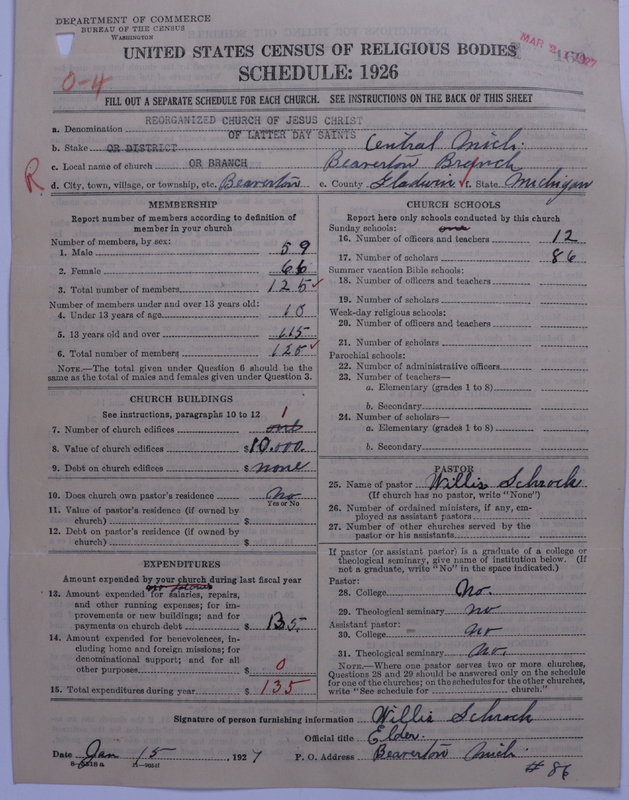 DEPARTMENT OF COMMERCE
BUREAU OF THE CENSUS
WASHINGTON
UNITED STATES CENSUS OF RELIGIOUS BODIES
SCHEDULE: 1926
MAR 2 1927
0-4
FILL OUT A SEPARATE SCHEDULE FOR EACH CHURCH. SEE INSTRUCTIONS ON THE BACK OF THIS SHEET
a. Denomination REORGANIZED CHURCH OF JESUS CHRIST
OF LATTER DAY SAINTS
b. Stake OR DISTRICT Central Mich.
c. Local name of church OR BRANCH Beaverton Branch
R
d. City, town, village, or township, etc. Beaverton e. County Gladwin f. State Michigan
MEMBERSHIP
Report number of members according to definition of
member in your church
Number of members, by sex:
1. Male 59
2. Female 66
3. Total number of members 125 ✓
Number of members under and over 13 years old:
4. Under 13 years of age 10
5. 13 years old and over 115
6. Total number of members 125 ✓
NOTE.—The total given under Question 6 should be
same as the total of males and females given under Question 3.
CHURCH BUILDINGS
See instructions, paragraphs 10 to 12
7. Number of church edifices one 1
8. Value of church edifices $ 10.000.
9. Debt on church edifices $ none
10. Does church own pastor's residence No
Yes or No
11. Value of pastor's residence (if owned by
church) $
12. Debt on pastor's residence (if owned by
church) $
EXPENDITURES
Amount expended by your church during last fiscal year
no salaries
13. Amount expended for salaries, repairs,
and other running expenses; for im-
provements or new buildings; and for
payments on church debt $ 135.
14. Amount expended for benevolences, in-
cluding home and foreign missions; for
denominational support; and for all
other purposes $ 0
15. Total expenditures during year $ 135
CHURCH SCHOOLS
Report here only schools conducted by this church
Sunday schools: one
16. Number of officers and teachers 12
17. Number of scholars 86
Summer vacation Bible schools:
18. Number of officers and teachers
19. Number of scholars
Week-day religious schools:
20. Number of officers and teachers
21. Number of scholars
Parochial schools:
22. Number of administrative officers
23. Number of teachers—
a. Elementary (grades 1 to 8)
b. Secondary
24. Number of scholars—
a. Elementary (grades 1 to 8)
b. Secondary
PASTOR
25. Name of pastor Willis Schrock
(If church has no pastor, write "None")
26. Number of ordained ministers, if any, em-
ployed as assistant pastors
27. Number of other churches served by the
pastor or his assistants
If pastor (or assistant pastor) is a graduate of a college or
theological seminary, give name of institution below. (If
not a graduate, write "No" in the space indicated.)
Pastor:
28. College No.
29. Theological seminary no
Assistant pastor:
30. College no
31. Theological seminary no.
NOTE.—Where one pastor serves two or more churches,
Questions 28 and 29 should be answered only on the schedule
for one of the churches; on the schedules for the other churches,
write "See schedule for church."
Signature of person furnishing information Willis Schrock
Official title Elder.
Date Jan 15, 1927 P. O. Address Beaverton Mich.
# 86